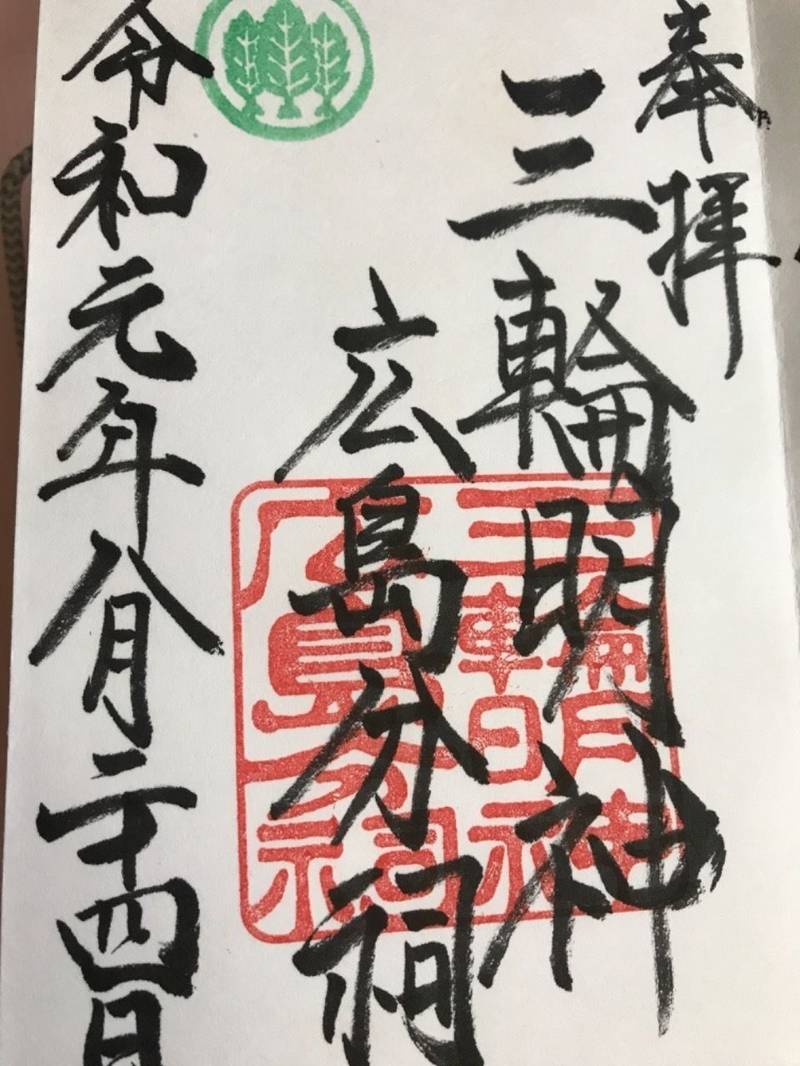 奉拝
三輪明神
広島分祠
令和元年八月二十四日
三輪明神
広島分祠